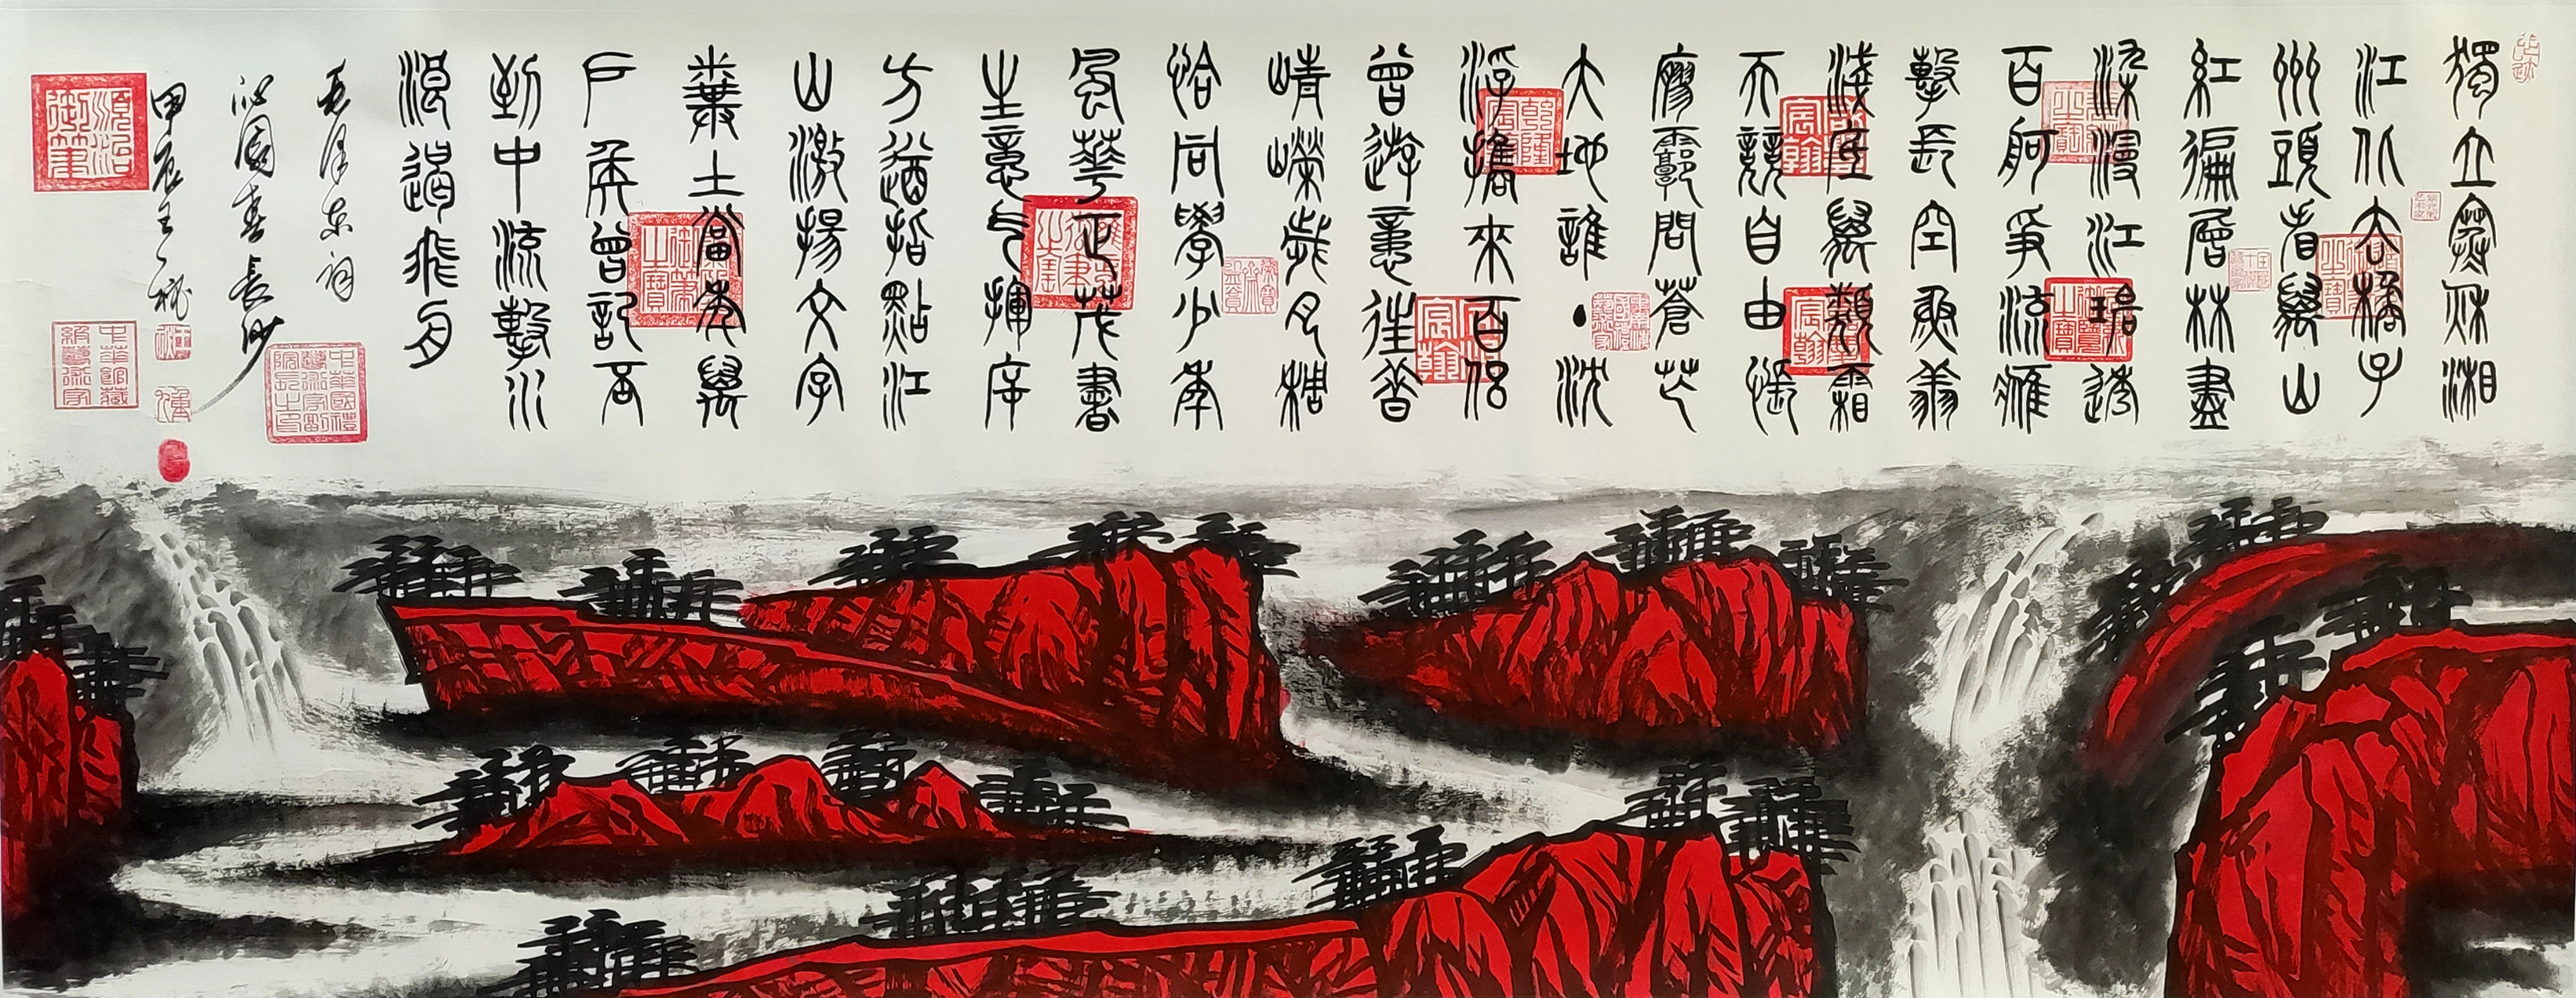 獨立寒秋湘
江北去橘子
州頭看萬山
紅遍層林盡
染漫江碧透
百舸爭流鷹
擊長空魚翔
淺底萬類霜
天競自由悵
廖廓問蒼茫
大地誰丶沈
浮攜來百侶
曾遊憶往昔
崢嶸歲月稠
恰同學少年
風華正茂書
生意气揮斥
方遒指點江
山激揚文字
糞土當年萬
户侯曾記否
到中流擊水
浪遏飛舟
毛澤东詞
沁園春長沙
甲辰王一
順治御筆
乾隆宸翰